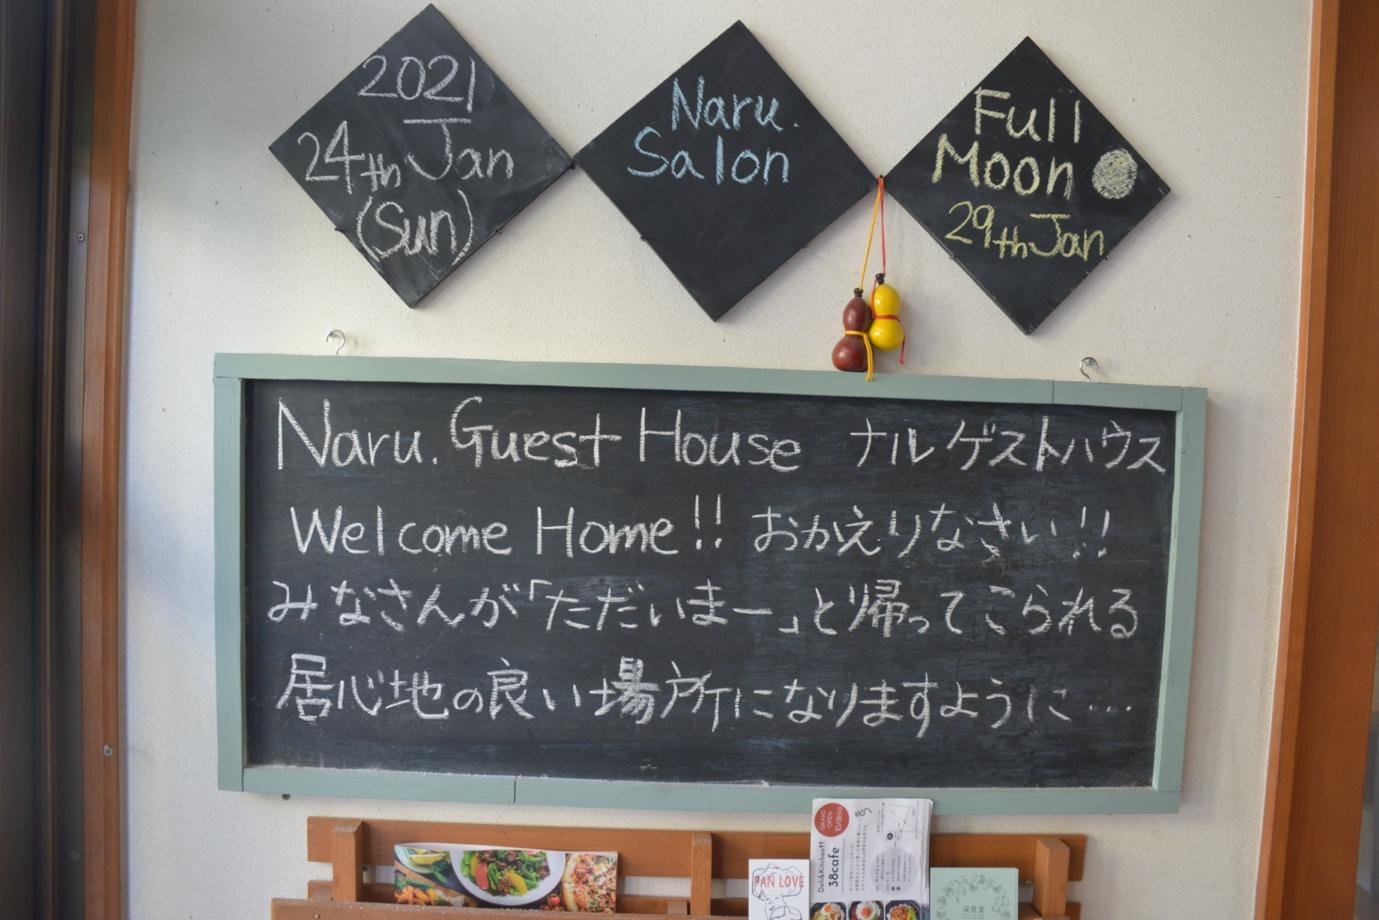 2021
24th Jan
(Sun)
Naru.
Salon
Full
Moon
29th Jan
Naru. Guest House ナルゲストハウス
Welcome Home!! おかえりなさい!!
みなさんが「ただいまー」と帰ってこられる
居心地の良い場所になりますように…
PAN LOVE
GRAND OPEN
Deli&Kitchen
38cafe